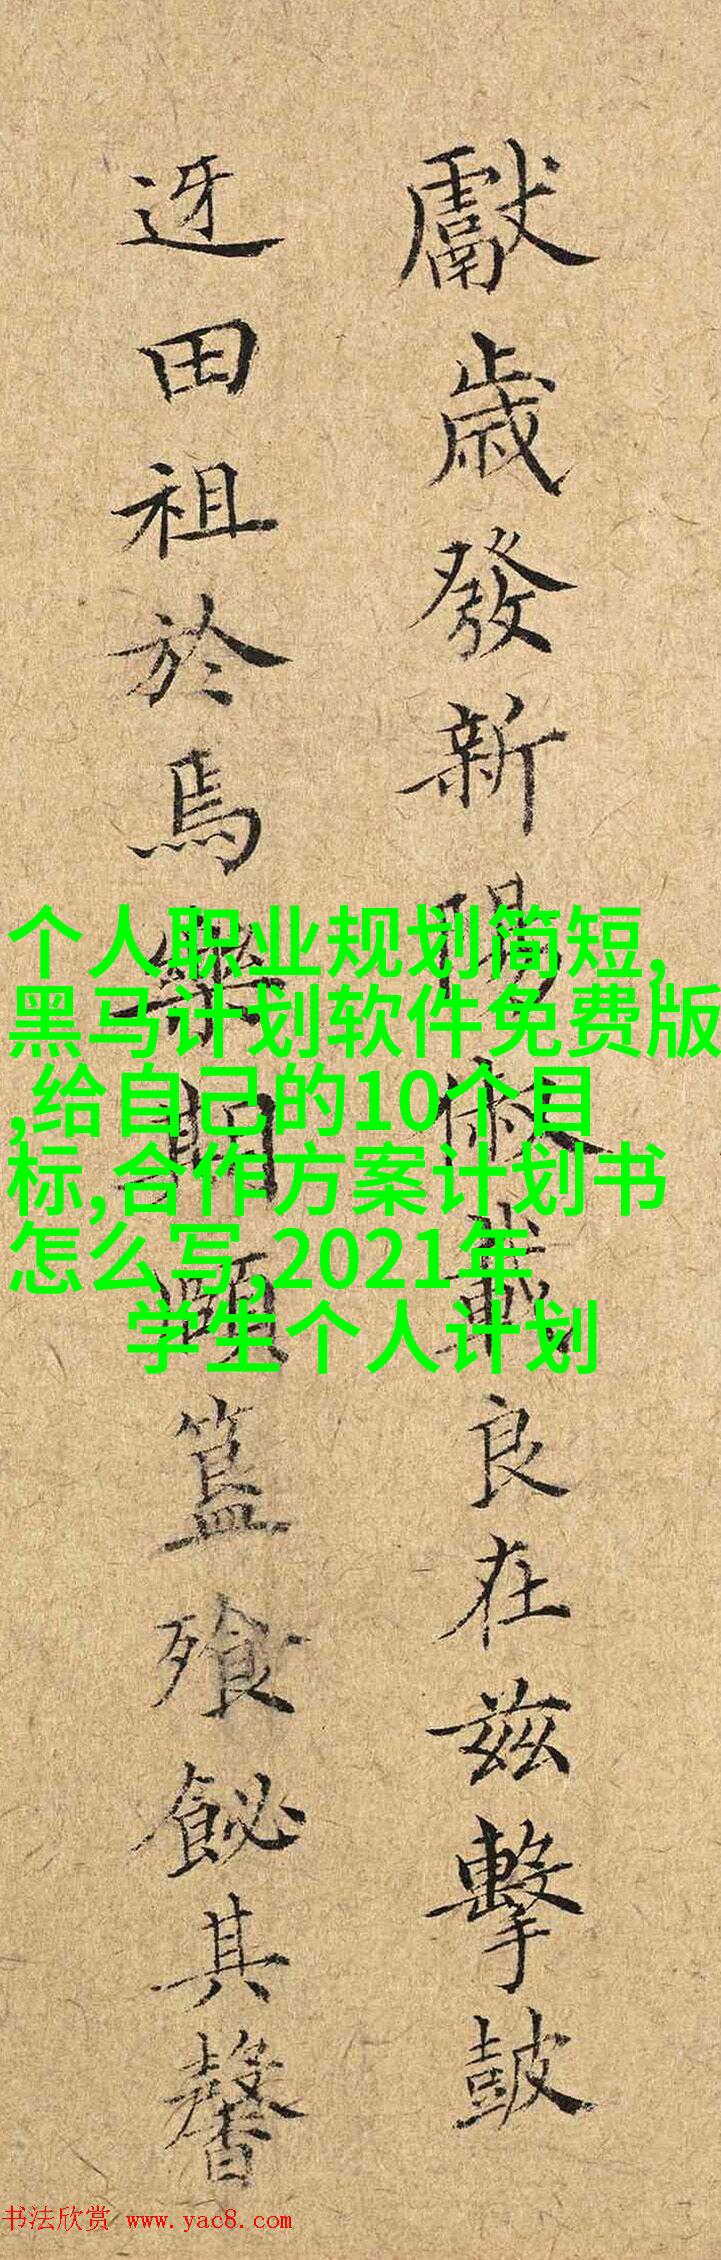 獻歲發新陽俶載良在茲擊鼓
迓田祖於焉樂簋飱飶其馨
个人职业规划简短,
黑马计划软件免费版
,给自己的10个目
标,合作方案计划书
怎么写,2021年
学生个人计划
书法欣赏 www.yac8.com